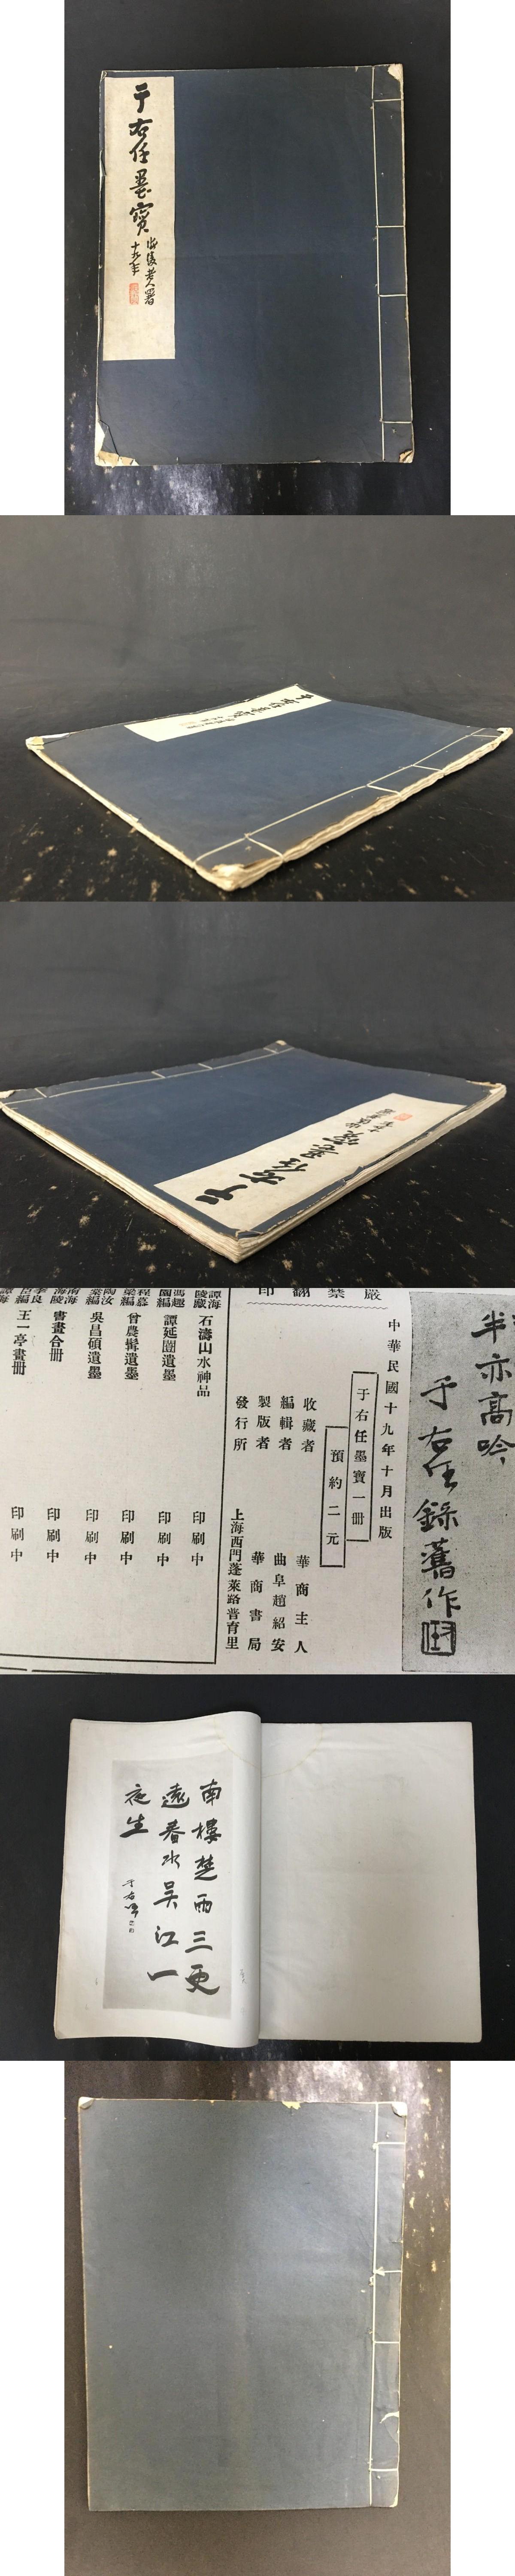 于右任墨寶
十九年
于右任墨寶
嚴禁翻印
半亦高吟
于右任錄舊作
中華民國十九年十月出版
于右任墨寶一冊
預約二元
收藏者 華商主人
編輯者 曲阜趙紹安
製版者 華商書局
發行所 上海西門蓬萊路普育里
石濤山水神品 印刷中
譚延闓遺墨 印刷中
曾農髯遺墨 印刷中
吳昌碩遺墨 印刷中
書畫合冊 印刷中
王一亭畫冊 印刷中
南樓楚雨三更
遠春水吳江一
夜生
于右任